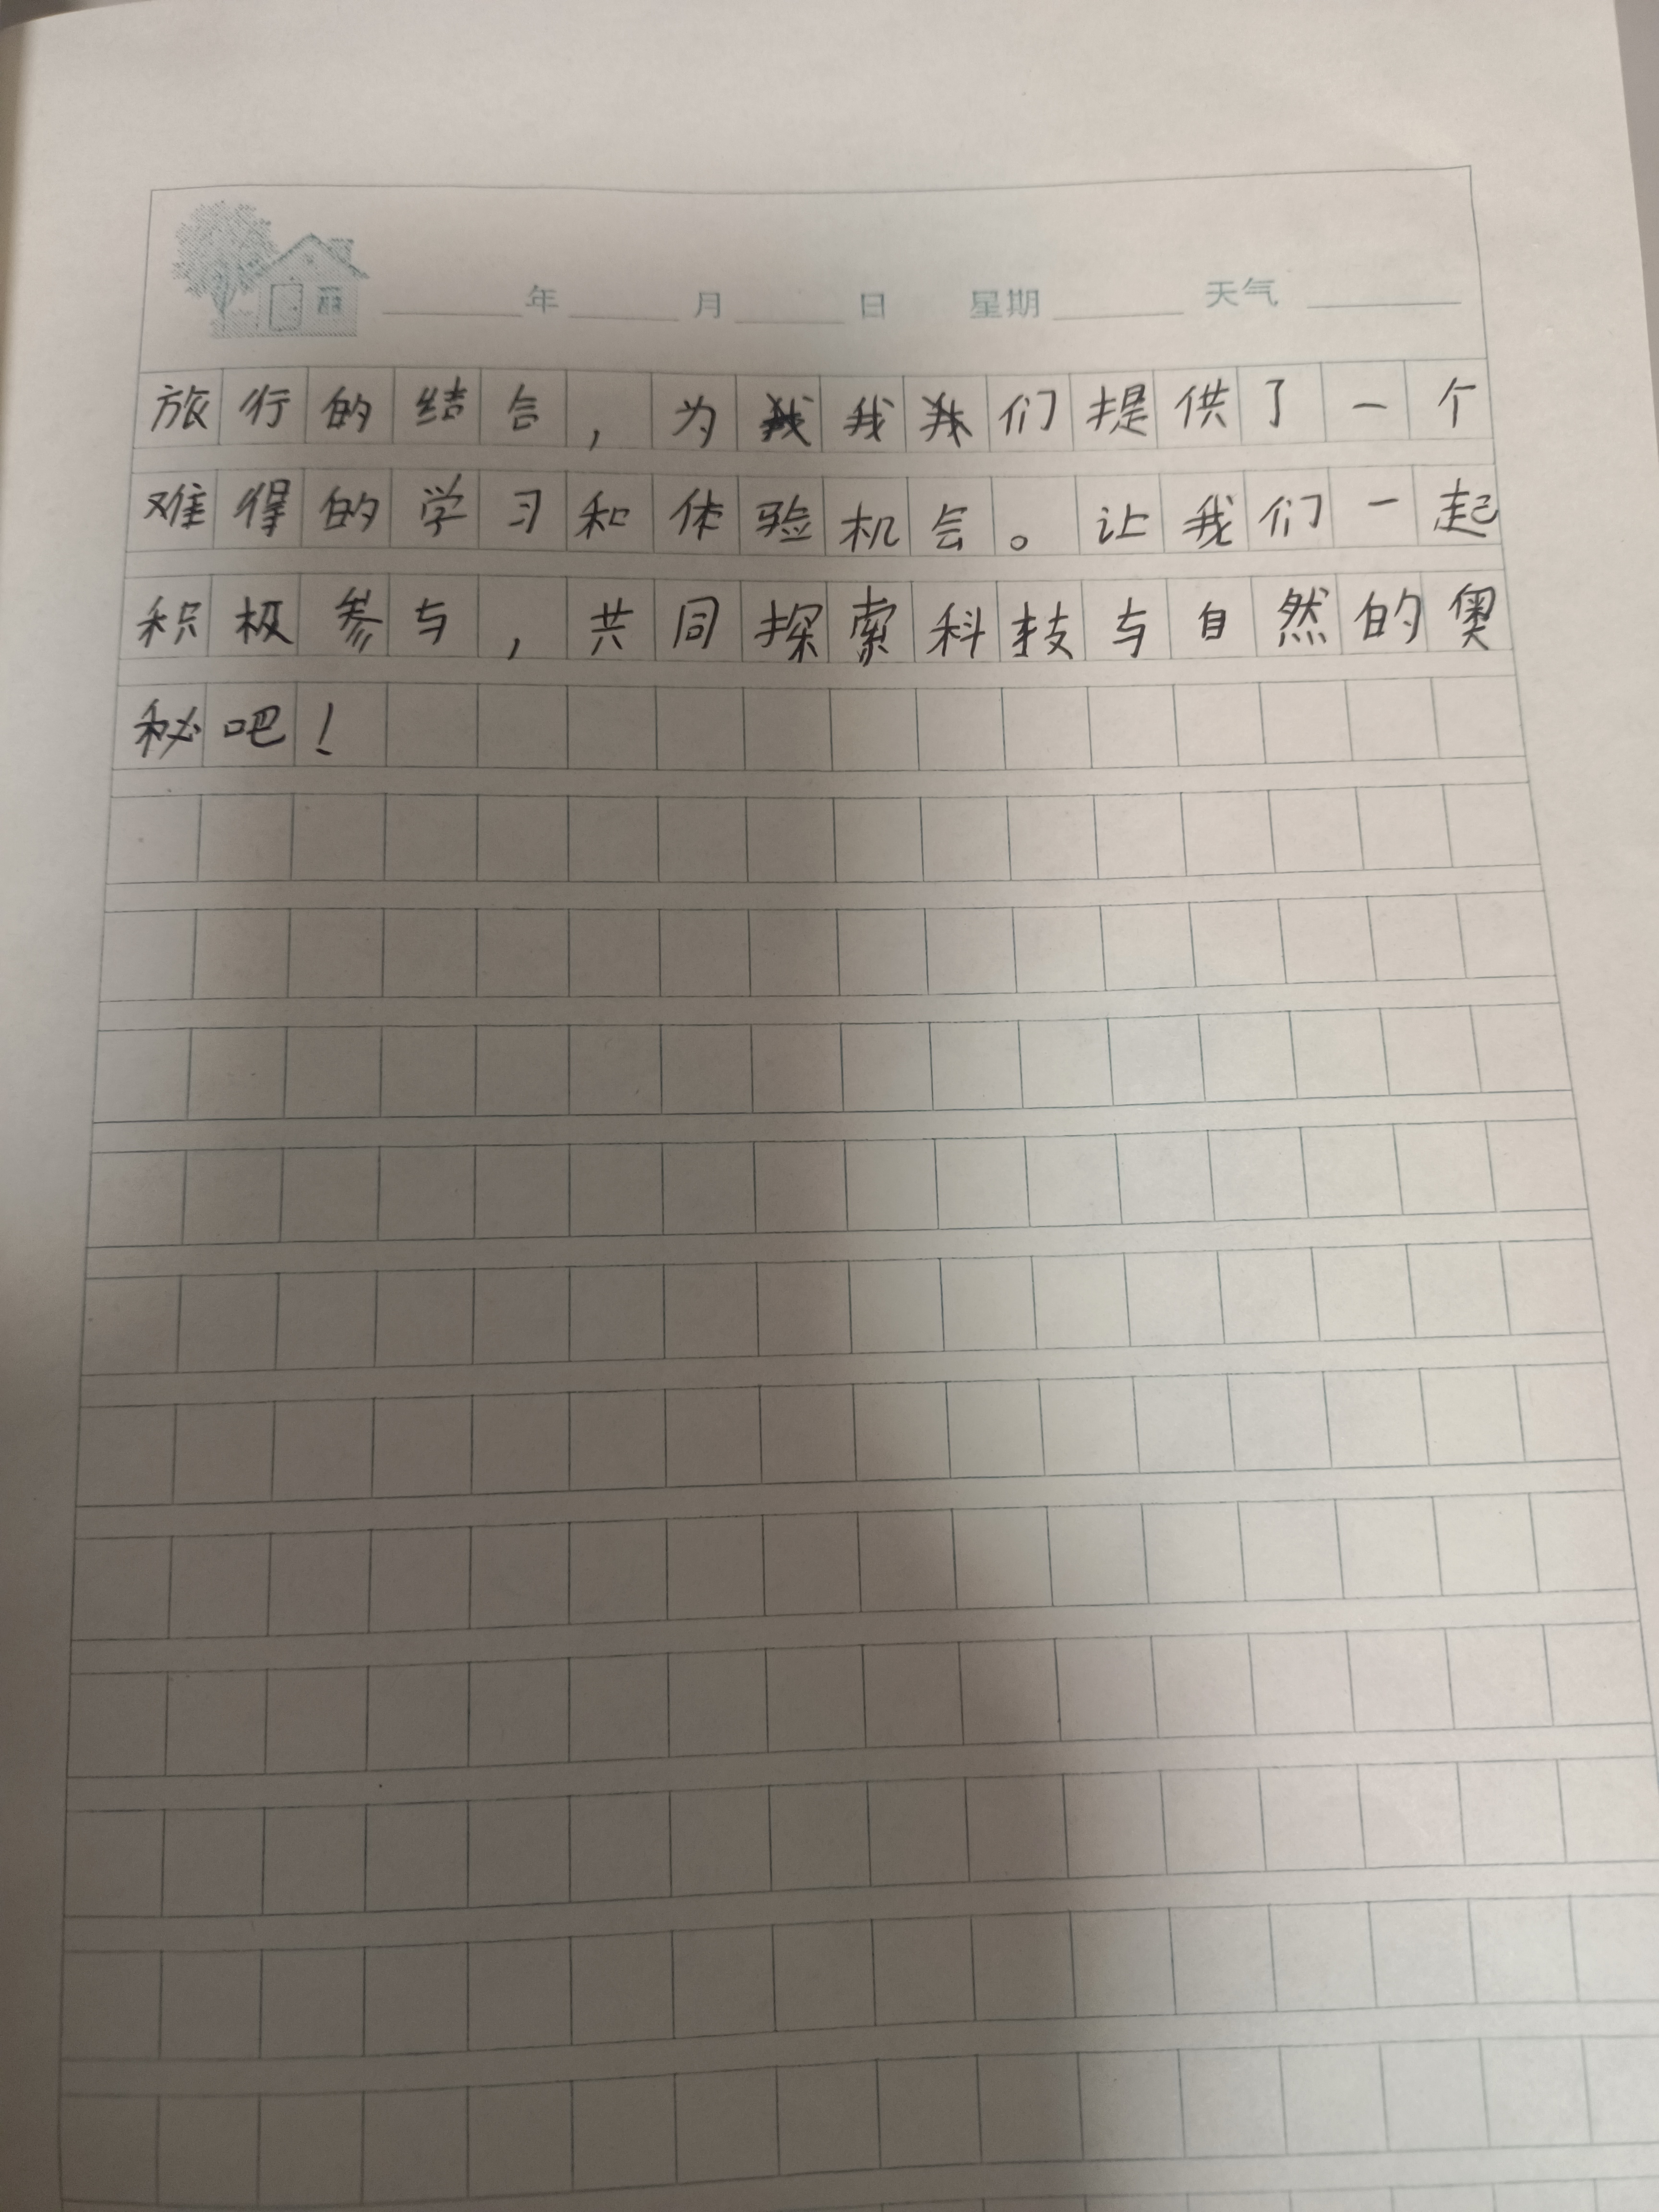 年 月 日 星期 天气
旅行的结合,为我我我们提供了一个
难得的学习和体验机会。让我们一起
积极参与,共同探索科技与自然的奥
秘吧!